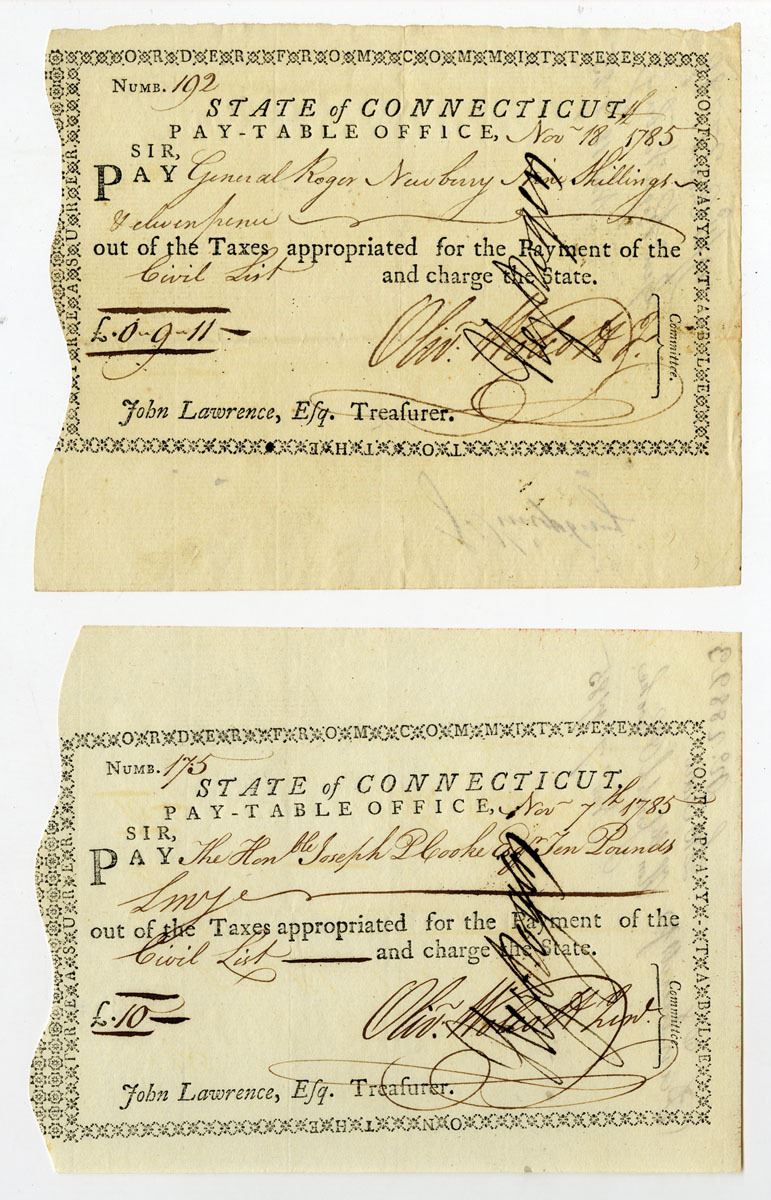 ORDER FROM COMMITTEE
OF PAY-TABLE
TO THE
TREASURER
NUMB. 192
STATE of CONNECTICUT,
PAY-TABLE OFFICE, Novr 18th 1785
SIR,
PAY General Roger Newberry Nine Shillings
& elevenpence
out of the Taxes appropriated for the Payment of the
Civil List and charge the State.
£.0-9-11-
Olivr. Wolcott Jr.
Committee.
John Lawrence, Esq. Treaſurer.
ORDER FROM COMMITTEE
OF PAY-TABLE
ON THE
TREASURER
NUMB. 175
STATE of CONNECTICUT,
PAY-TABLE OFFICE, Novr 7th 1785
SIR,
PAY The Honble Joseph P Cooke Esqr Ten Pounds
out of the Taxes appropriated for the Payment of the
Civil List and charge the State.
£.10-
Olivr. Wolcott Junr.
Committee.
John Lawrence, Esq. Treaſurer.